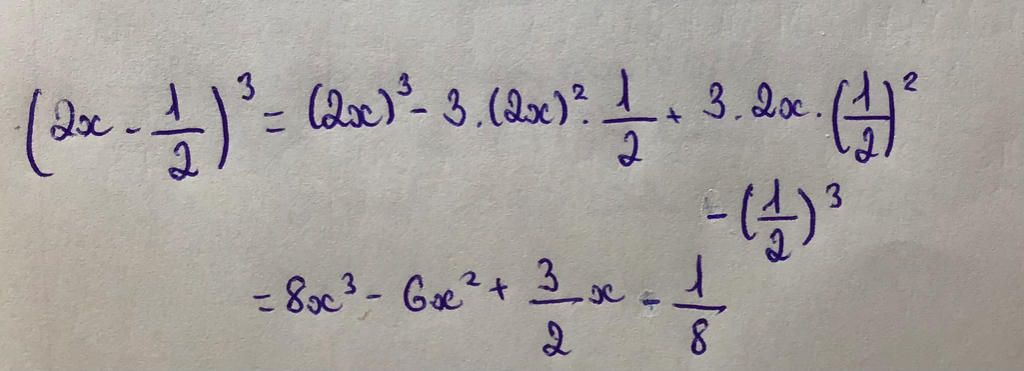 (2x - 1/2)³ = (2x)³ - 3.(2x)². 1/2 + 3. 2x. (1/2)²
- (1/2)³
= 8x³ - 6x² + 3/2 x - 1/8